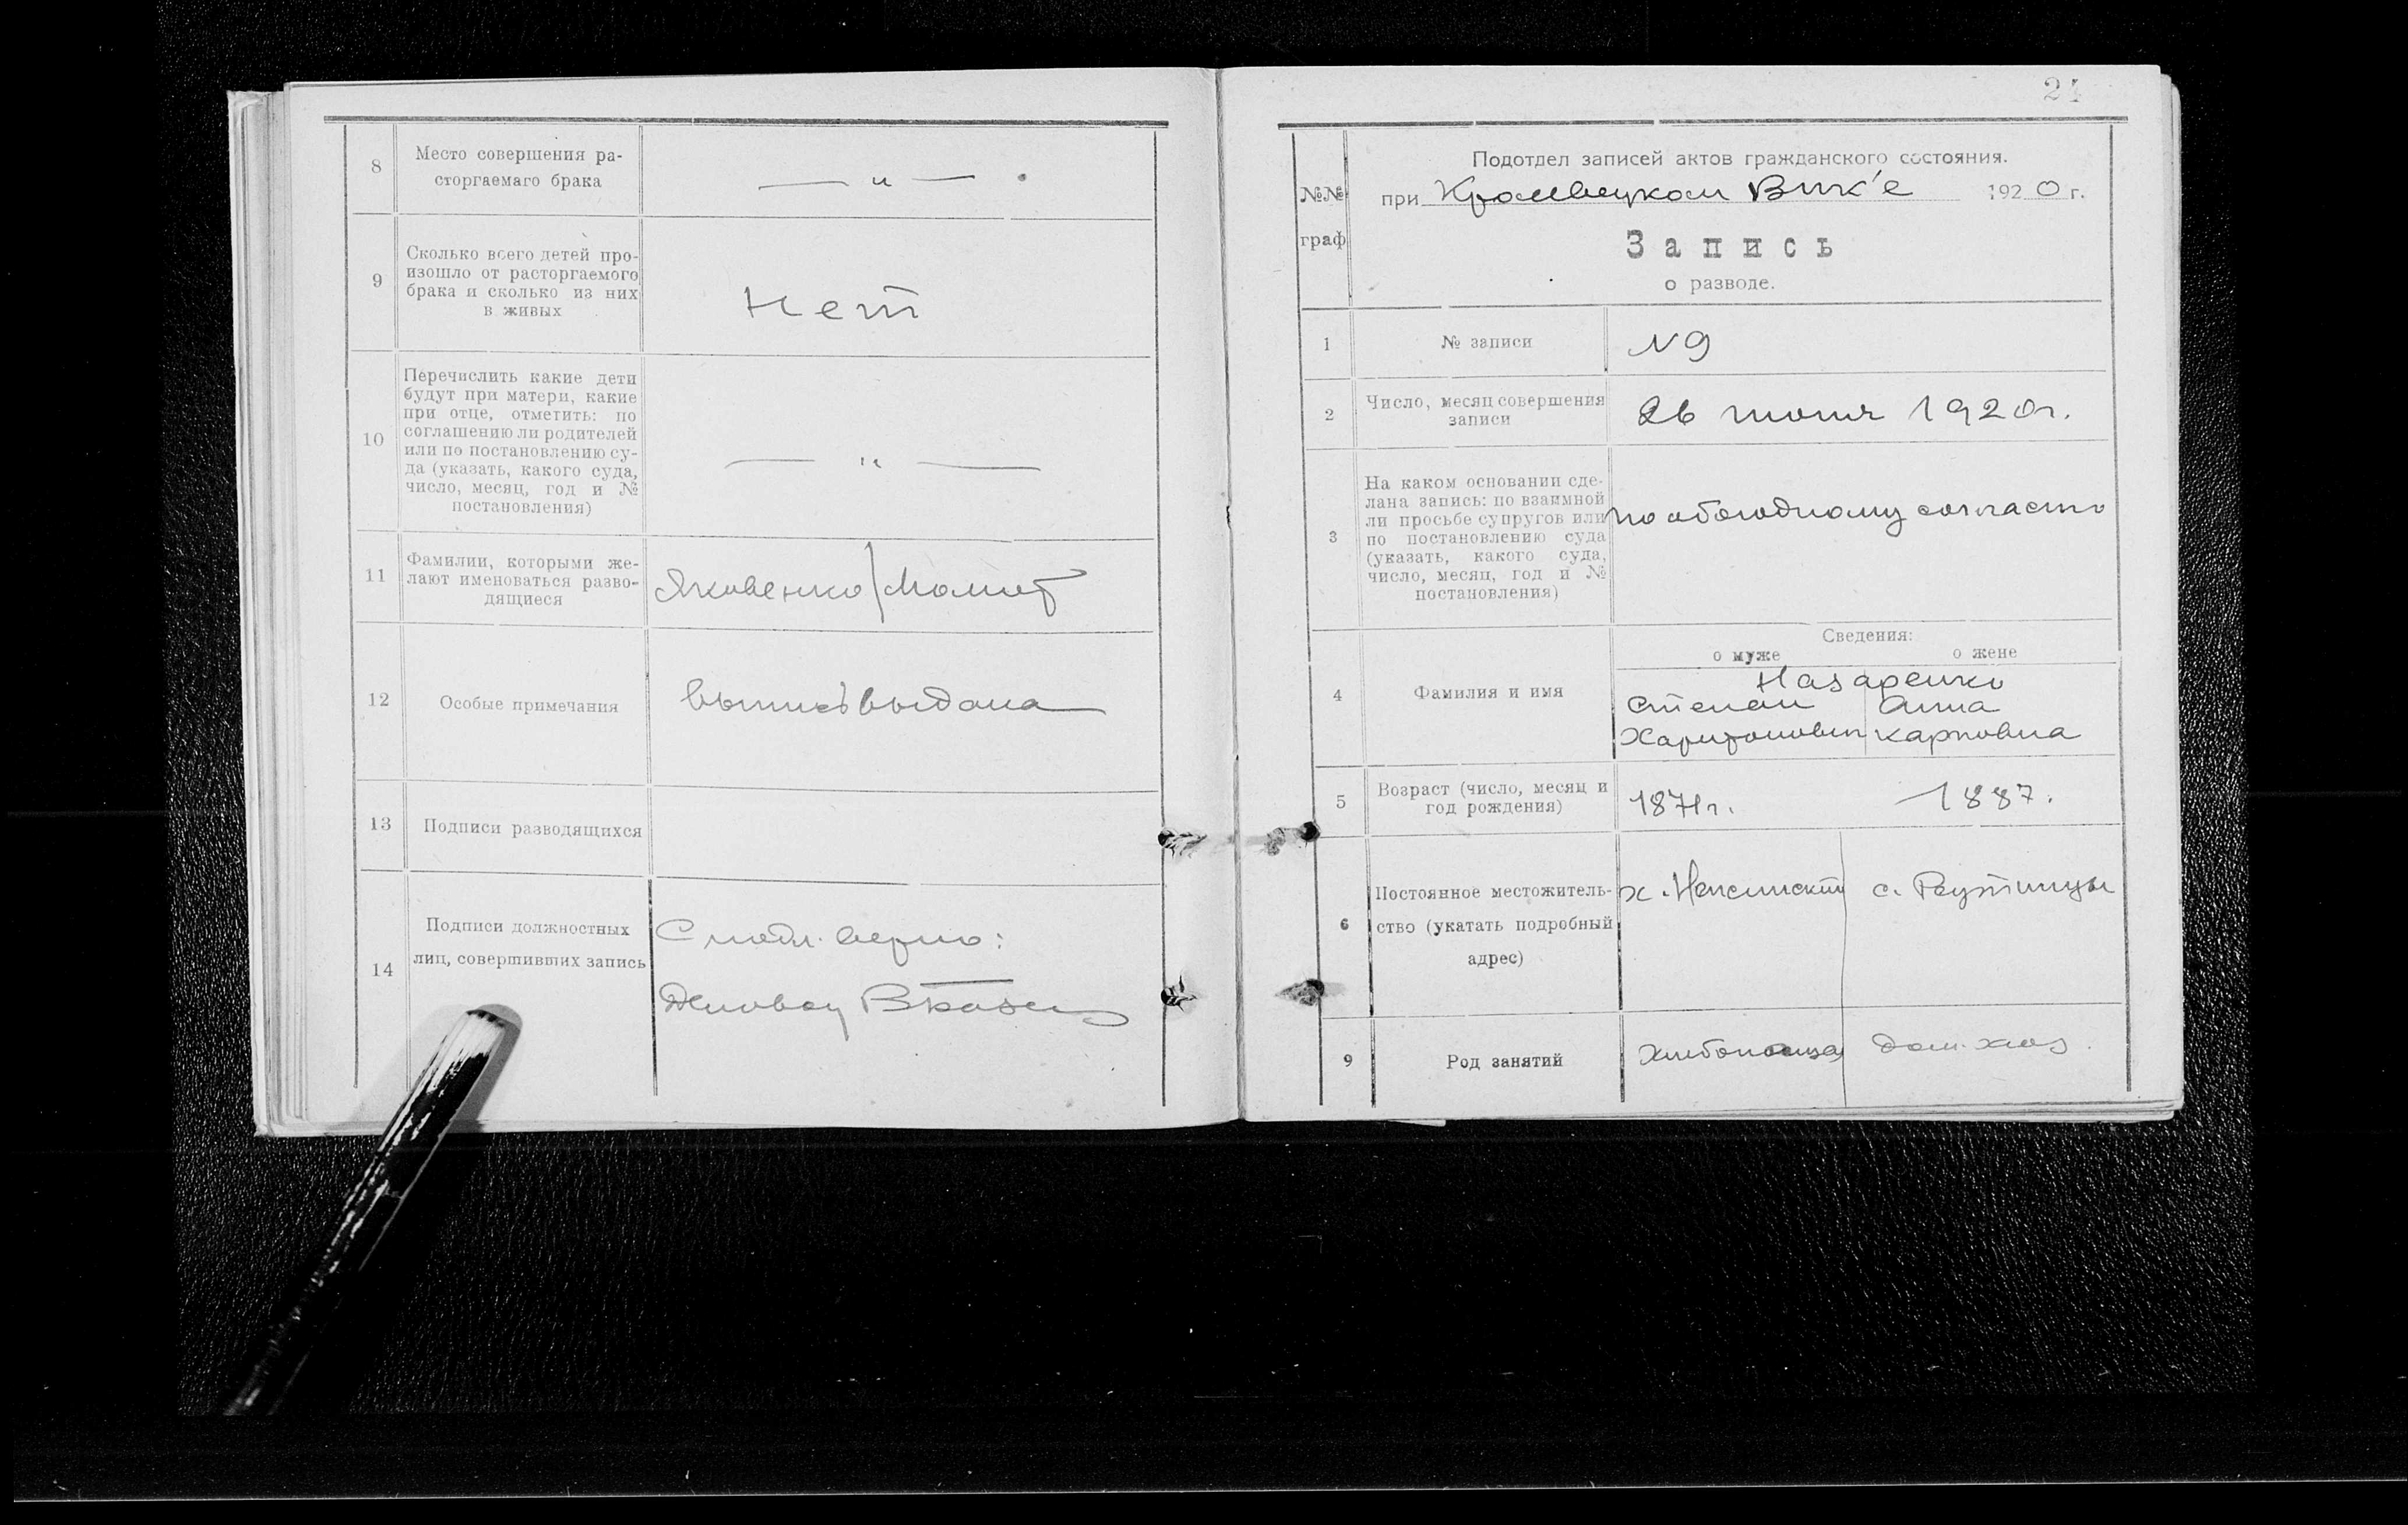 8
Место совершения ра-
сторгаемаго брака
— „ — .
9
Сколько всего детей про-
изошло от расторгаемого
брака и сколько из них
в живых
Нет
10
Перечислить какие дети
будут при матери, какие
при отце, отметить: по
соглашению ли родителей
или по постановлению су-
да (указать, какого суда,
число, месяц, год и №
постановления)
— „ —
11
Фамилии, которыми же-
лают именоваться разво-
дящиеся
Яковенко /
12
Особые примечания
Выпись выдана
13
Подписи разводящихся
14
Подписи должностных
лиц, совершивших запись
С подл. верно:
21
№№
граф
Подотдел записей актов гражданского состояния.
при Кролевецком Вик'е 1920 г.
Запись
о разводе.
1
№ записи
N 9
2
Число, месяц совершения
записи
26 июня 1920 г.
3
На каком основании сде-
лана запись: по взаимной
ли просьбе супругов или
по постановлению суда
(указать, какого суда,
число, месяц, год и №
постановления)
по обоюдному согласию
4
Фамилия и имя
Сведения:
о муже о жене
Назаренко
Степан Анна
Харитонович Карповна
5
Возраст (число, месяц и
год рождения)
1871 г. 1887.
6
Постоянное местожитель-
ство (укатать подробный
адрес)
х. с. Реутинцы
9
Род занятий
Хлебопашец дом. хоз.